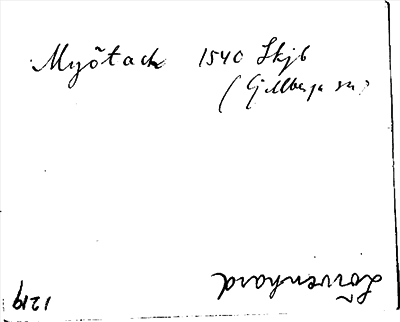 Myõtack 1540 Skjb
(Gillberga sn)
Lövenhard
1219